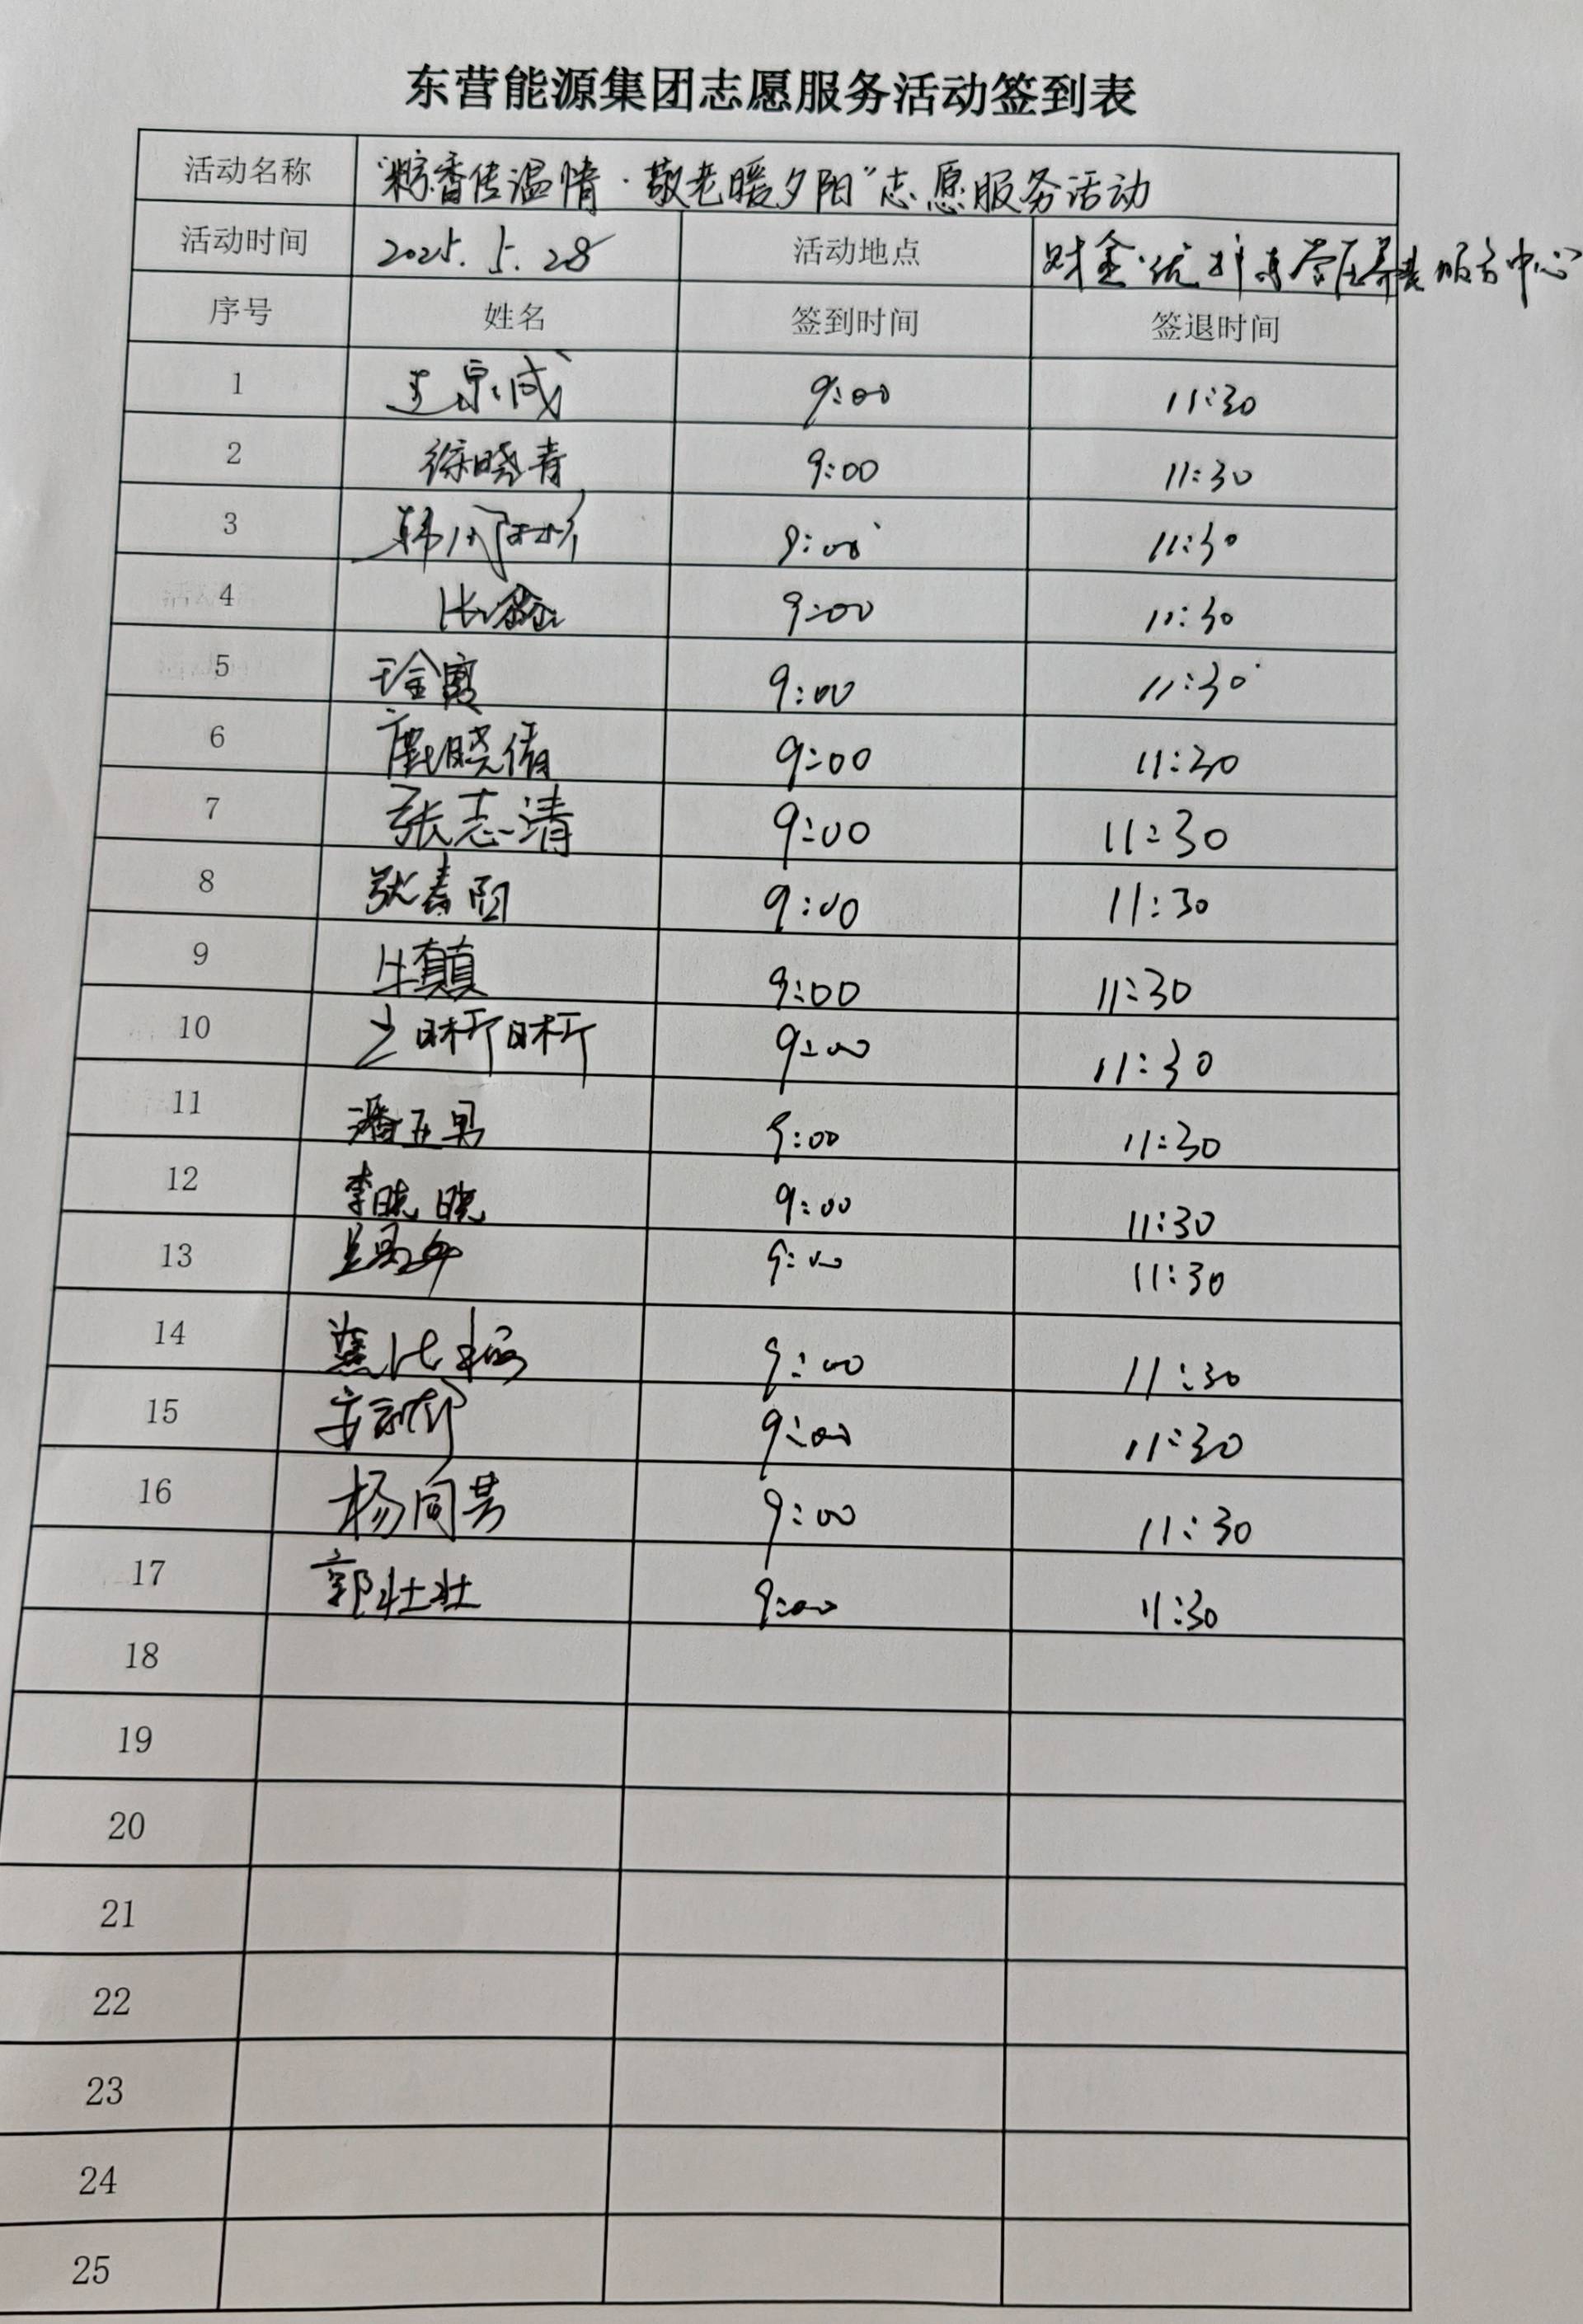 东营能源集团志愿服务活动签到表
活动名称 "粽香传温情·敬老暖夕阳"志愿服务活动
活动时间 2025.5.28 活动地点 财金·优护 养老服务中心
序号 姓名 签到时间 签退时间
1 9:00 11:30
2 徐晓青 9:00 11:30
3 韩 9:00 11:30
4 张 9:00 11:30
5 9:00 11:30
6 鹿晓倩 9:00 11:30
7 张志清 9:00 11:30
8 张春 9:00 11:30
9 牛真真 9:00 11:30
10 9:00 11:30
11 潘 9:00 11:30
12 李晓晓 9:00 11:30
13 9:00 11:30
14 9:00 11:30
15 9:00 11:30
16 杨同芳 9:00 11:30
17 郭壮壮 9:00 11:30
18
19
20
21
22
23
24
25